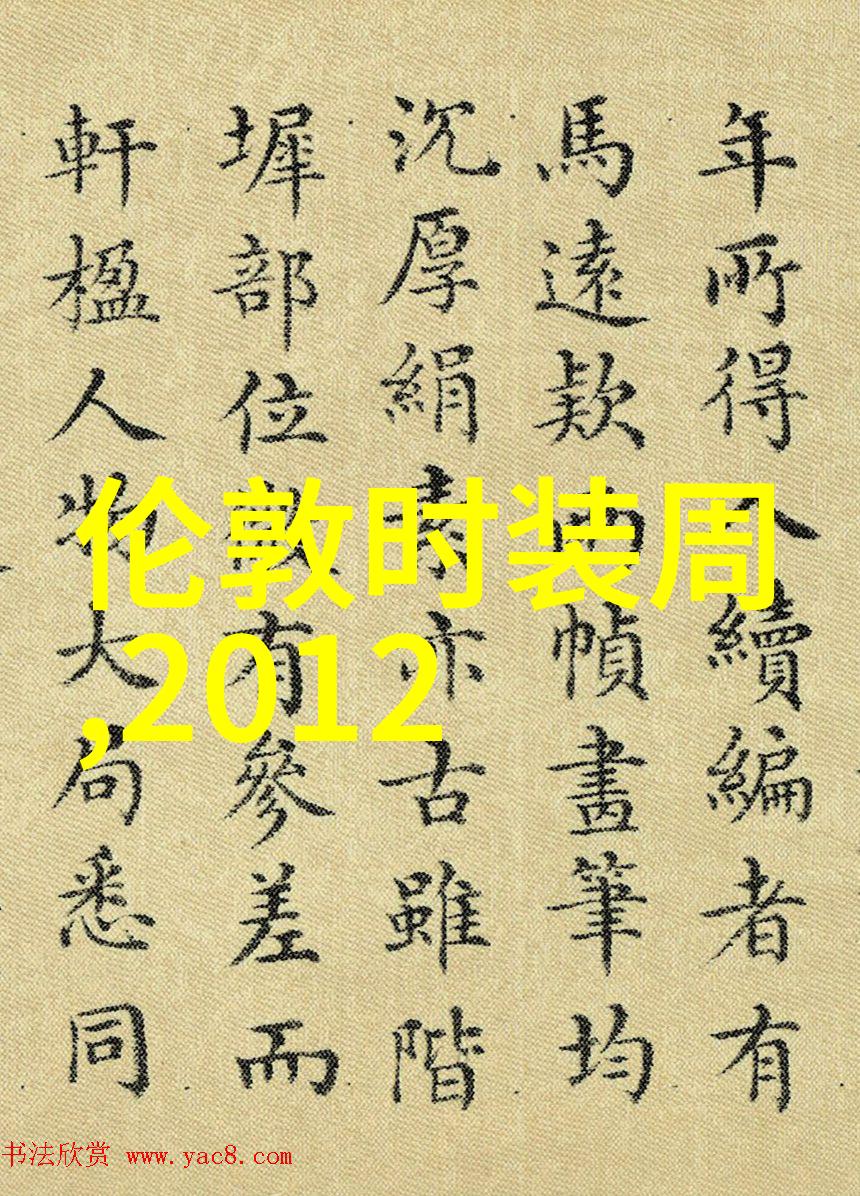 年所得續編者有
馬遠款兩幀畫筆均
沉厚絹素亦古雖階
墀部位微有參差而
軒楹人物大局悉同
伦敦时装周
,2012
书法欣赏 www.yac8.com